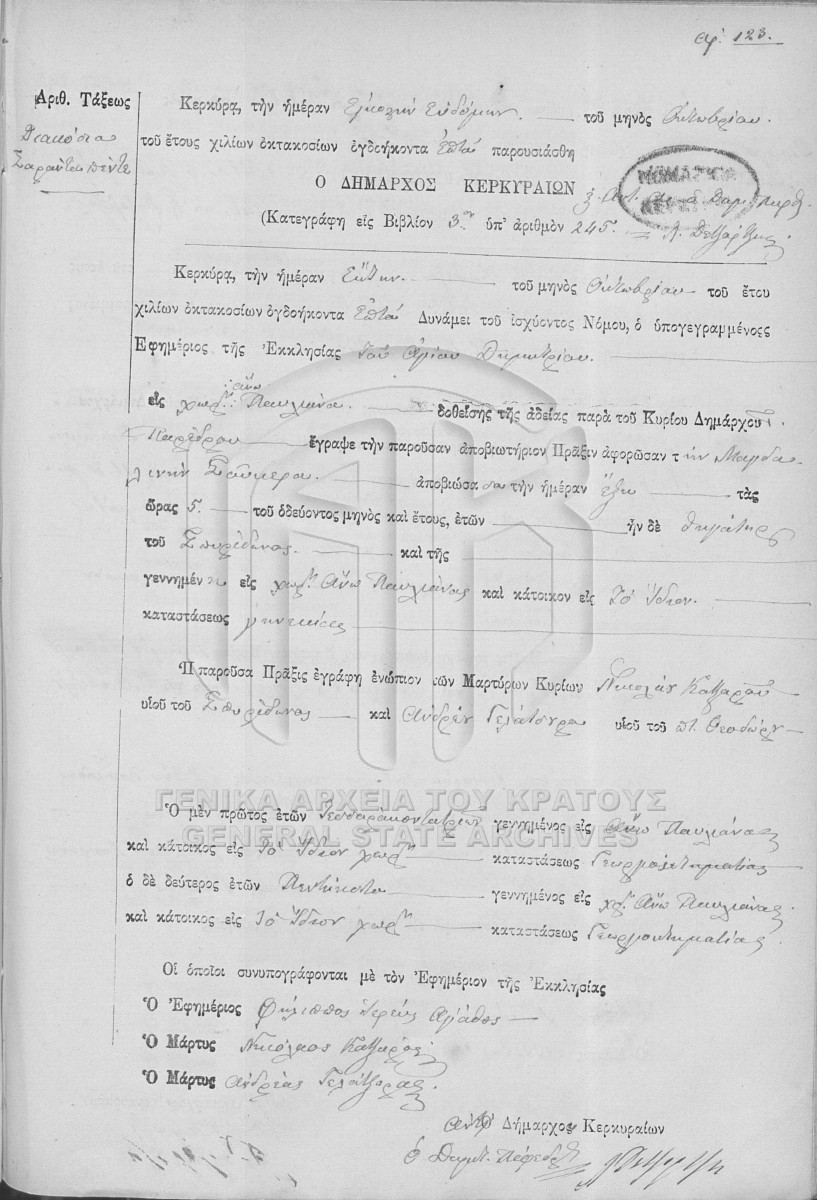 αρ. 123.
Ἀριθ. Τάξεως
Διακόσια
Σαράντα πέντε
Κερκύρᾳ, τὴν ἡμέραν Εἰκοστὴν Ἑυδόμην τοῦ μηνὸς Ὀκτωβρίου.
τοῦ ἔτους χιλίων ὀκτακοσίων ὀγδοήκοντα ἑπτά παρουσιάσθη
Ο ΔΗΜΑΡΧΟΣ ΚΕΡΚΥΡΑΙΩΝ
(Κατεγράφη εἰς Βιβλίον 3ον ὑπ' ἀριθμὸν 245.
Κερκύρᾳ, τὴν ἡμέραν Ἕκτην τοῦ μηνὸς Ὀκτωβρίου τοῦ ἔτου
χιλίων ὀκτακοσίων ὀγδοήκοντα Ἑπτά Δυνάμει τοῦ ἰσχύοντος Νόμου, ὁ ὑπογεγραμμένος
Ἐφημέριος τῆς Ἐκκλησίας τοῦ Ἁγίου Δημητρίου.
εἰς χωρ: ἄνω Παυλιάνα. δοθείσης τῆς ἀδείας παρὰ τοῦ Κυρίου Δημάρχου
Παρέδρου ἔγραψε τὴν παροῦσαν ἀποβιωτήριον Πρᾶξιν ἀφορῶσαν τ ὴν Μαγδα
ληνὴν ἀποβιώσα σα τὴν ἡμέραν ἕξη τὰς
ὥρας 5. τοῦ ὁδεύοντος μηνὸς καὶ ἔτους, ἐτῶν ἦν δὲ θυγάτηρ
τοῦ Σπυρίδωνος. καὶ τῆς
γεννημέν η εἰς χωρ. Ἄνω Παυλιάνας καὶ κάτοικον εἰς τὸ ἴδιον.
καταστάσεως
Ἡ παροῦσα Πρᾶξις ἐγράφη ἐνώπιον τῶν Μαρτύρων Κυρίων Νικολάου Κατζαροῦ
υἱοῦ τοῦ Σπυρίδωνος καὶ Ἀνδρέου Γελάτσορα υἱοῦ τοῦ π. Θεοδώρου
ΓΕΝΙΚΑ ΑΡΧΕΙΑ ΤΟΥ ΚΡΑΤΟΥΣ
GENERAL STATE ARCHIVES
Ὁ μὲν πρῶτος ἐτῶν γεννημένος εἰς Ἄνω Παυλιάνας
καὶ κάτοικος εἰς τὸ ἴδιον χωρ. καταστάσεως Γεωργοκτηματίας
ὁ δὲ δεύτερος ἐτῶν Πεντήκοντα γεννημένος εἰς χωρ. Ἄνω Παυλιάνας.
καὶ κάτοικος εἰς τὸ ἴδιον χωρ. καταστάσεως Γεωργοκτηματίας.
Οἱ ὁποῖοι συνυπογράφονται μὲ τὸν Ἐφημέριον τῆς Ἐκκλησίας
Ὁ Ἐφημέριος Φίλιππος Ἱερεὺς Ἀγάθος
Ὁ Μάρτυς Νικόλαος Κατζαρὸς
Ὁ Μάρτυς Ἀνδρέας Γελάτζορας
Δήμαρχος Κερκυραίων